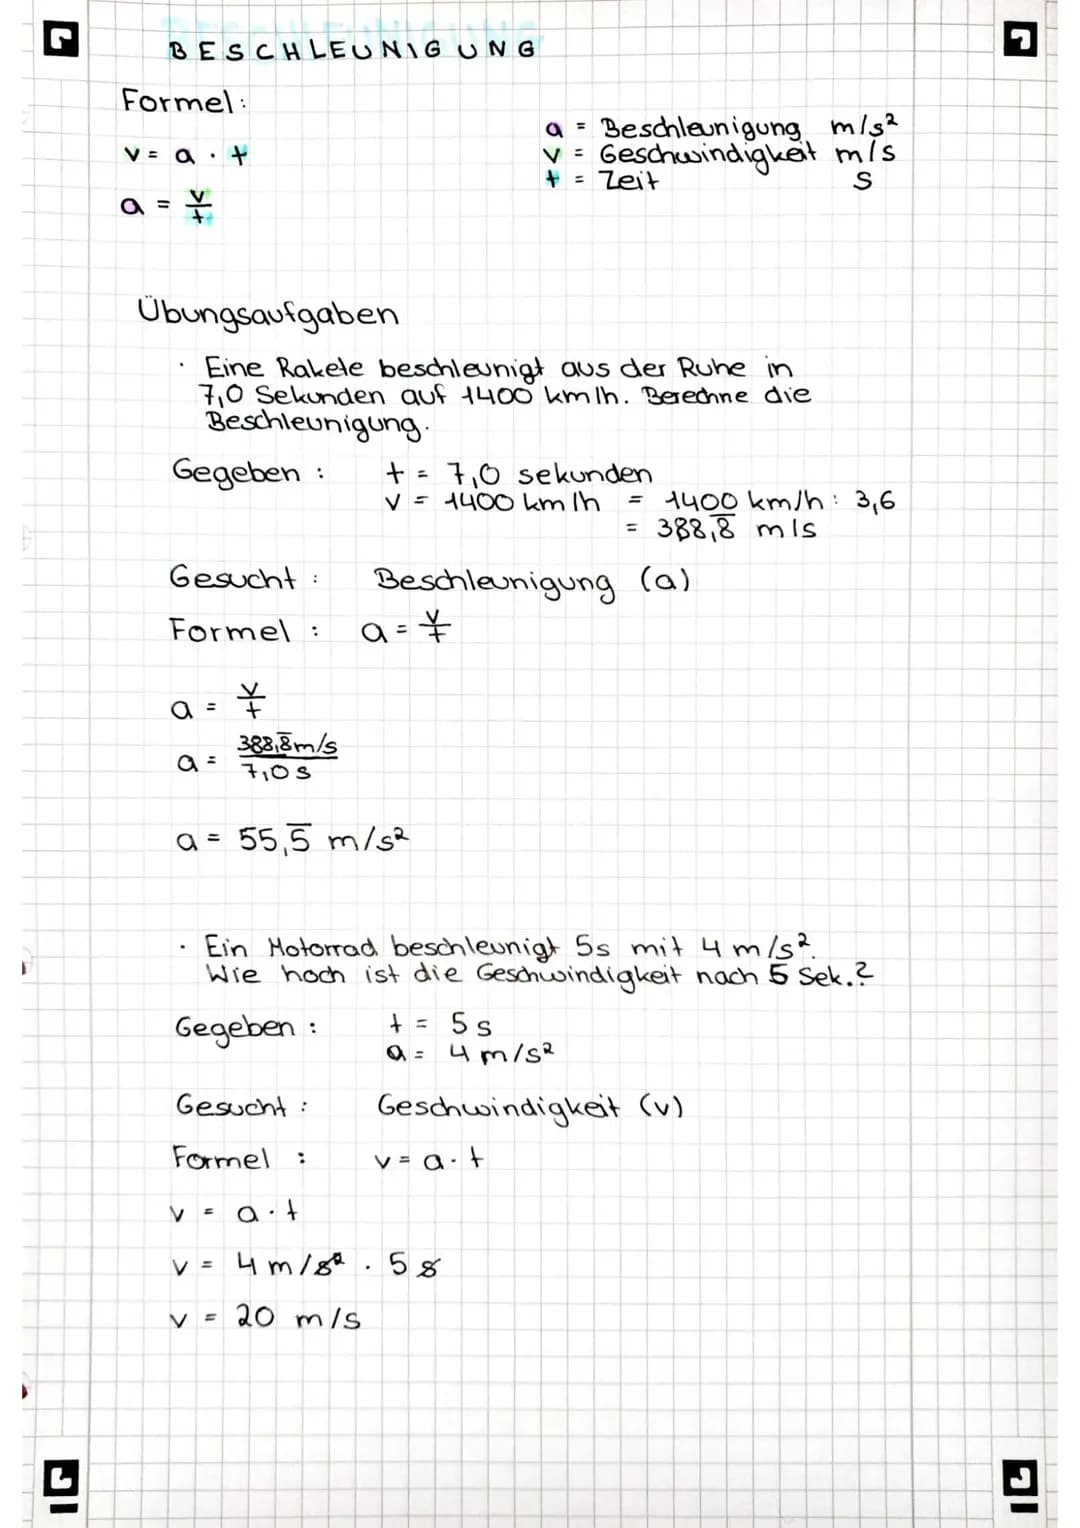 BESCHLEUNIGUNG
Formel:
v = a · t
a = v/t
a = Beschleunigung m/s²
v = Geschwindigkeit m/s
t = Zeit s
Übungsaufgaben
· Eine Rakete beschleunigt aus der Ruhe in
7,0 Sekunden auf 1400 km/h. Berechne die
Beschleunigung.
Gegeben : t = 7,0 sekunden
v = 1400 km/h = 1400 km/h : 3,6
= 388,8̅ m/s
Gesucht : Beschleunigung (a)
Formel : a = v/t
a = v/t
a = 388,8̅ m/s / 7,0 s
a = 55,5̅ m/s²
· Ein Motorrad beschleunigt 5s mit 4 m/s².
Wie hoch ist die Geschwindigkeit nach 5 Sek.?
Gegeben : t = 5 s
a = 4 m/s²
Gesucht : Geschwindigkeit (v)
Formel : v = a · t
v = a · t
v = 4 m/s² · 5 s
v = 20 m/s